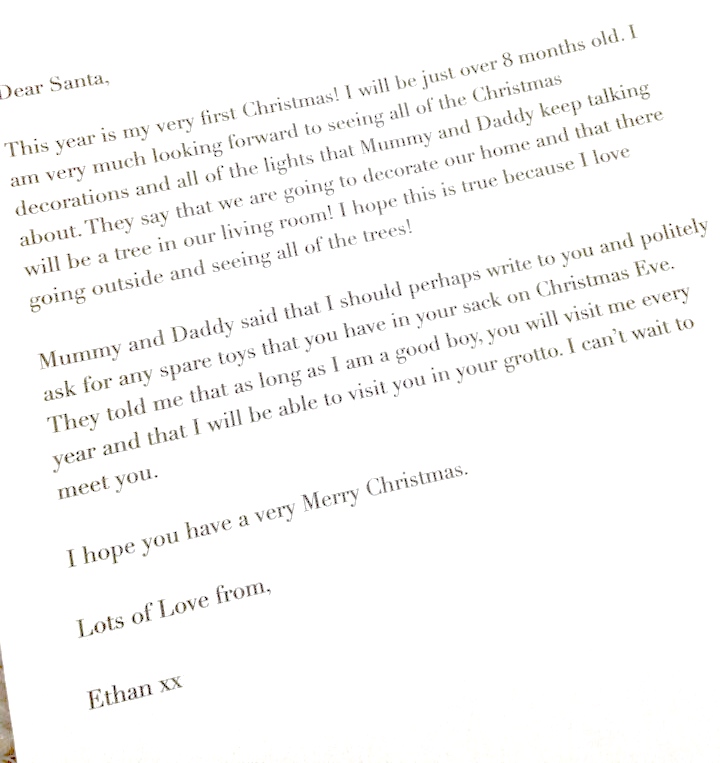 Dear Santa,
This year is my very first Christmas! I will be just over 8 months old. I
am very much looking forward to seeing all of the Christmas
decorations and all of the lights that Mummy and Daddy keep talking
about. They say that we are going to decorate our home and that there
will be a tree in our living room! I hope this is true because I love
going outside and seeing all of the trees!
Mummy and Daddy said that I should perhaps write to you and politely
ask for any spare toys that you have in your sack on Christmas Eve.
They told me that as long as I am a good boy, you will visit me every
year and that I will be able to visit you in your grotto. I can’t wait to
meet you.
I hope you have a very Merry Christmas.
Lots of Love from,
Ethan xx